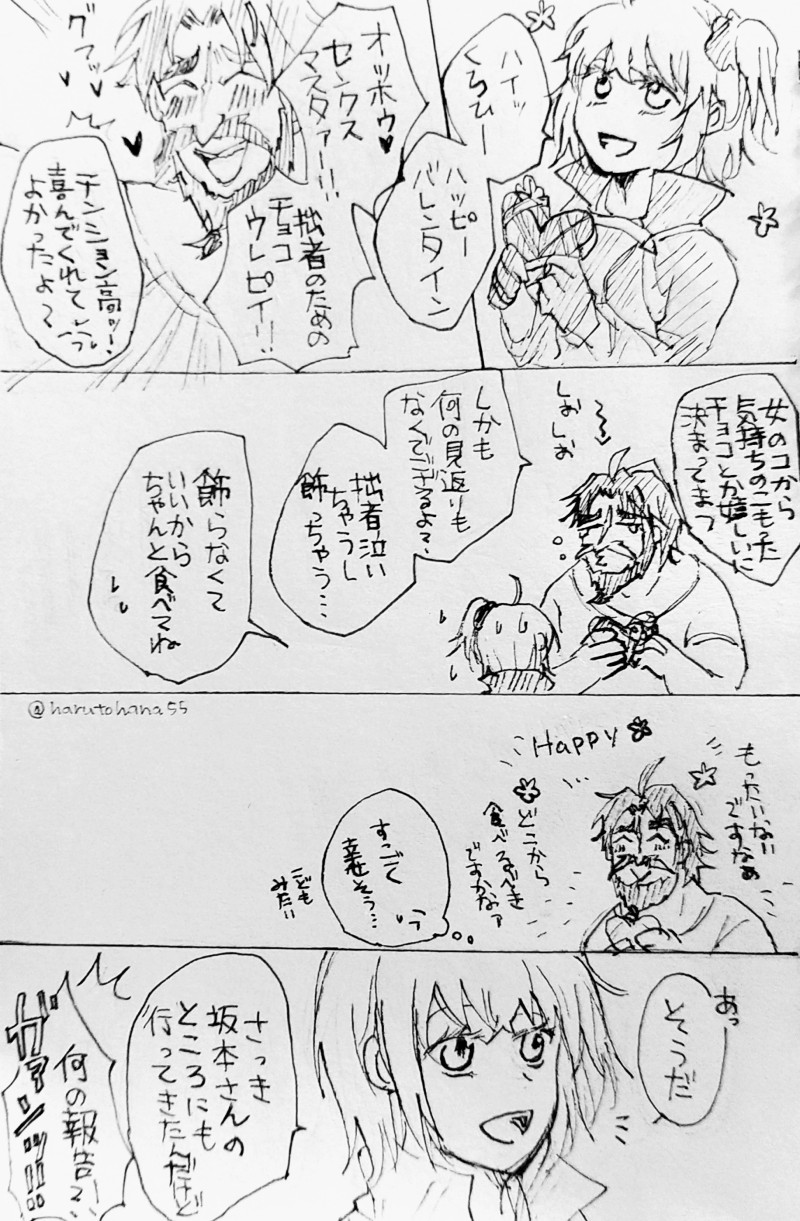 ハイッ
くろひー
ハッピー
バレンタイン
オッホウ♥
センクス
マスタァー!!
拙者のための
チョコ
ウレピイ!!
グフッ
テンション高ッ!
喜んでくれて
よかったよ?
女のコから
気持ちのこもった
チョコとか嬉しいに
決まってまつ
しお
しお
しかも
何の見返りも
なくでござるよ?
拙者泣い
ちゃうし
飾っちゃう…
飾らなくて
いいから
ちゃんと食べてね
@harutohana55
もったいない
ですなぁ
Happy
どこから
食べるべき
ですかなァ
すごく
幸せそう…
こども
みたい
あっ
そうだ
さっき
坂本さんの
ところにも
行ってきたんだけど
何の報告?!
ガァンッ!!!